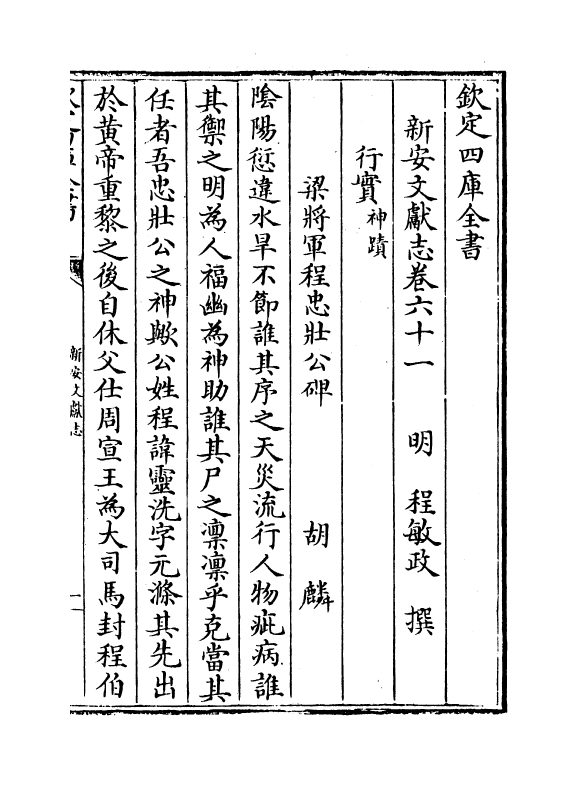 欽定四庫全書
新安文獻志卷六十一　明　程敏政　撰
行實神蹟
梁將軍程忠壯公碑　胡麟
陰陽愆違水旱不節誰其序之天災流行人物疵病誰
其禦之明為人福幽為神助誰其尸之凛凛乎克當其
任者吾忠壯公之神歟公姓程諱靈洗字元滌其先出
於黄帝重黎之後自休父仕周宣王為大司馬封程伯
新安文獻志
一